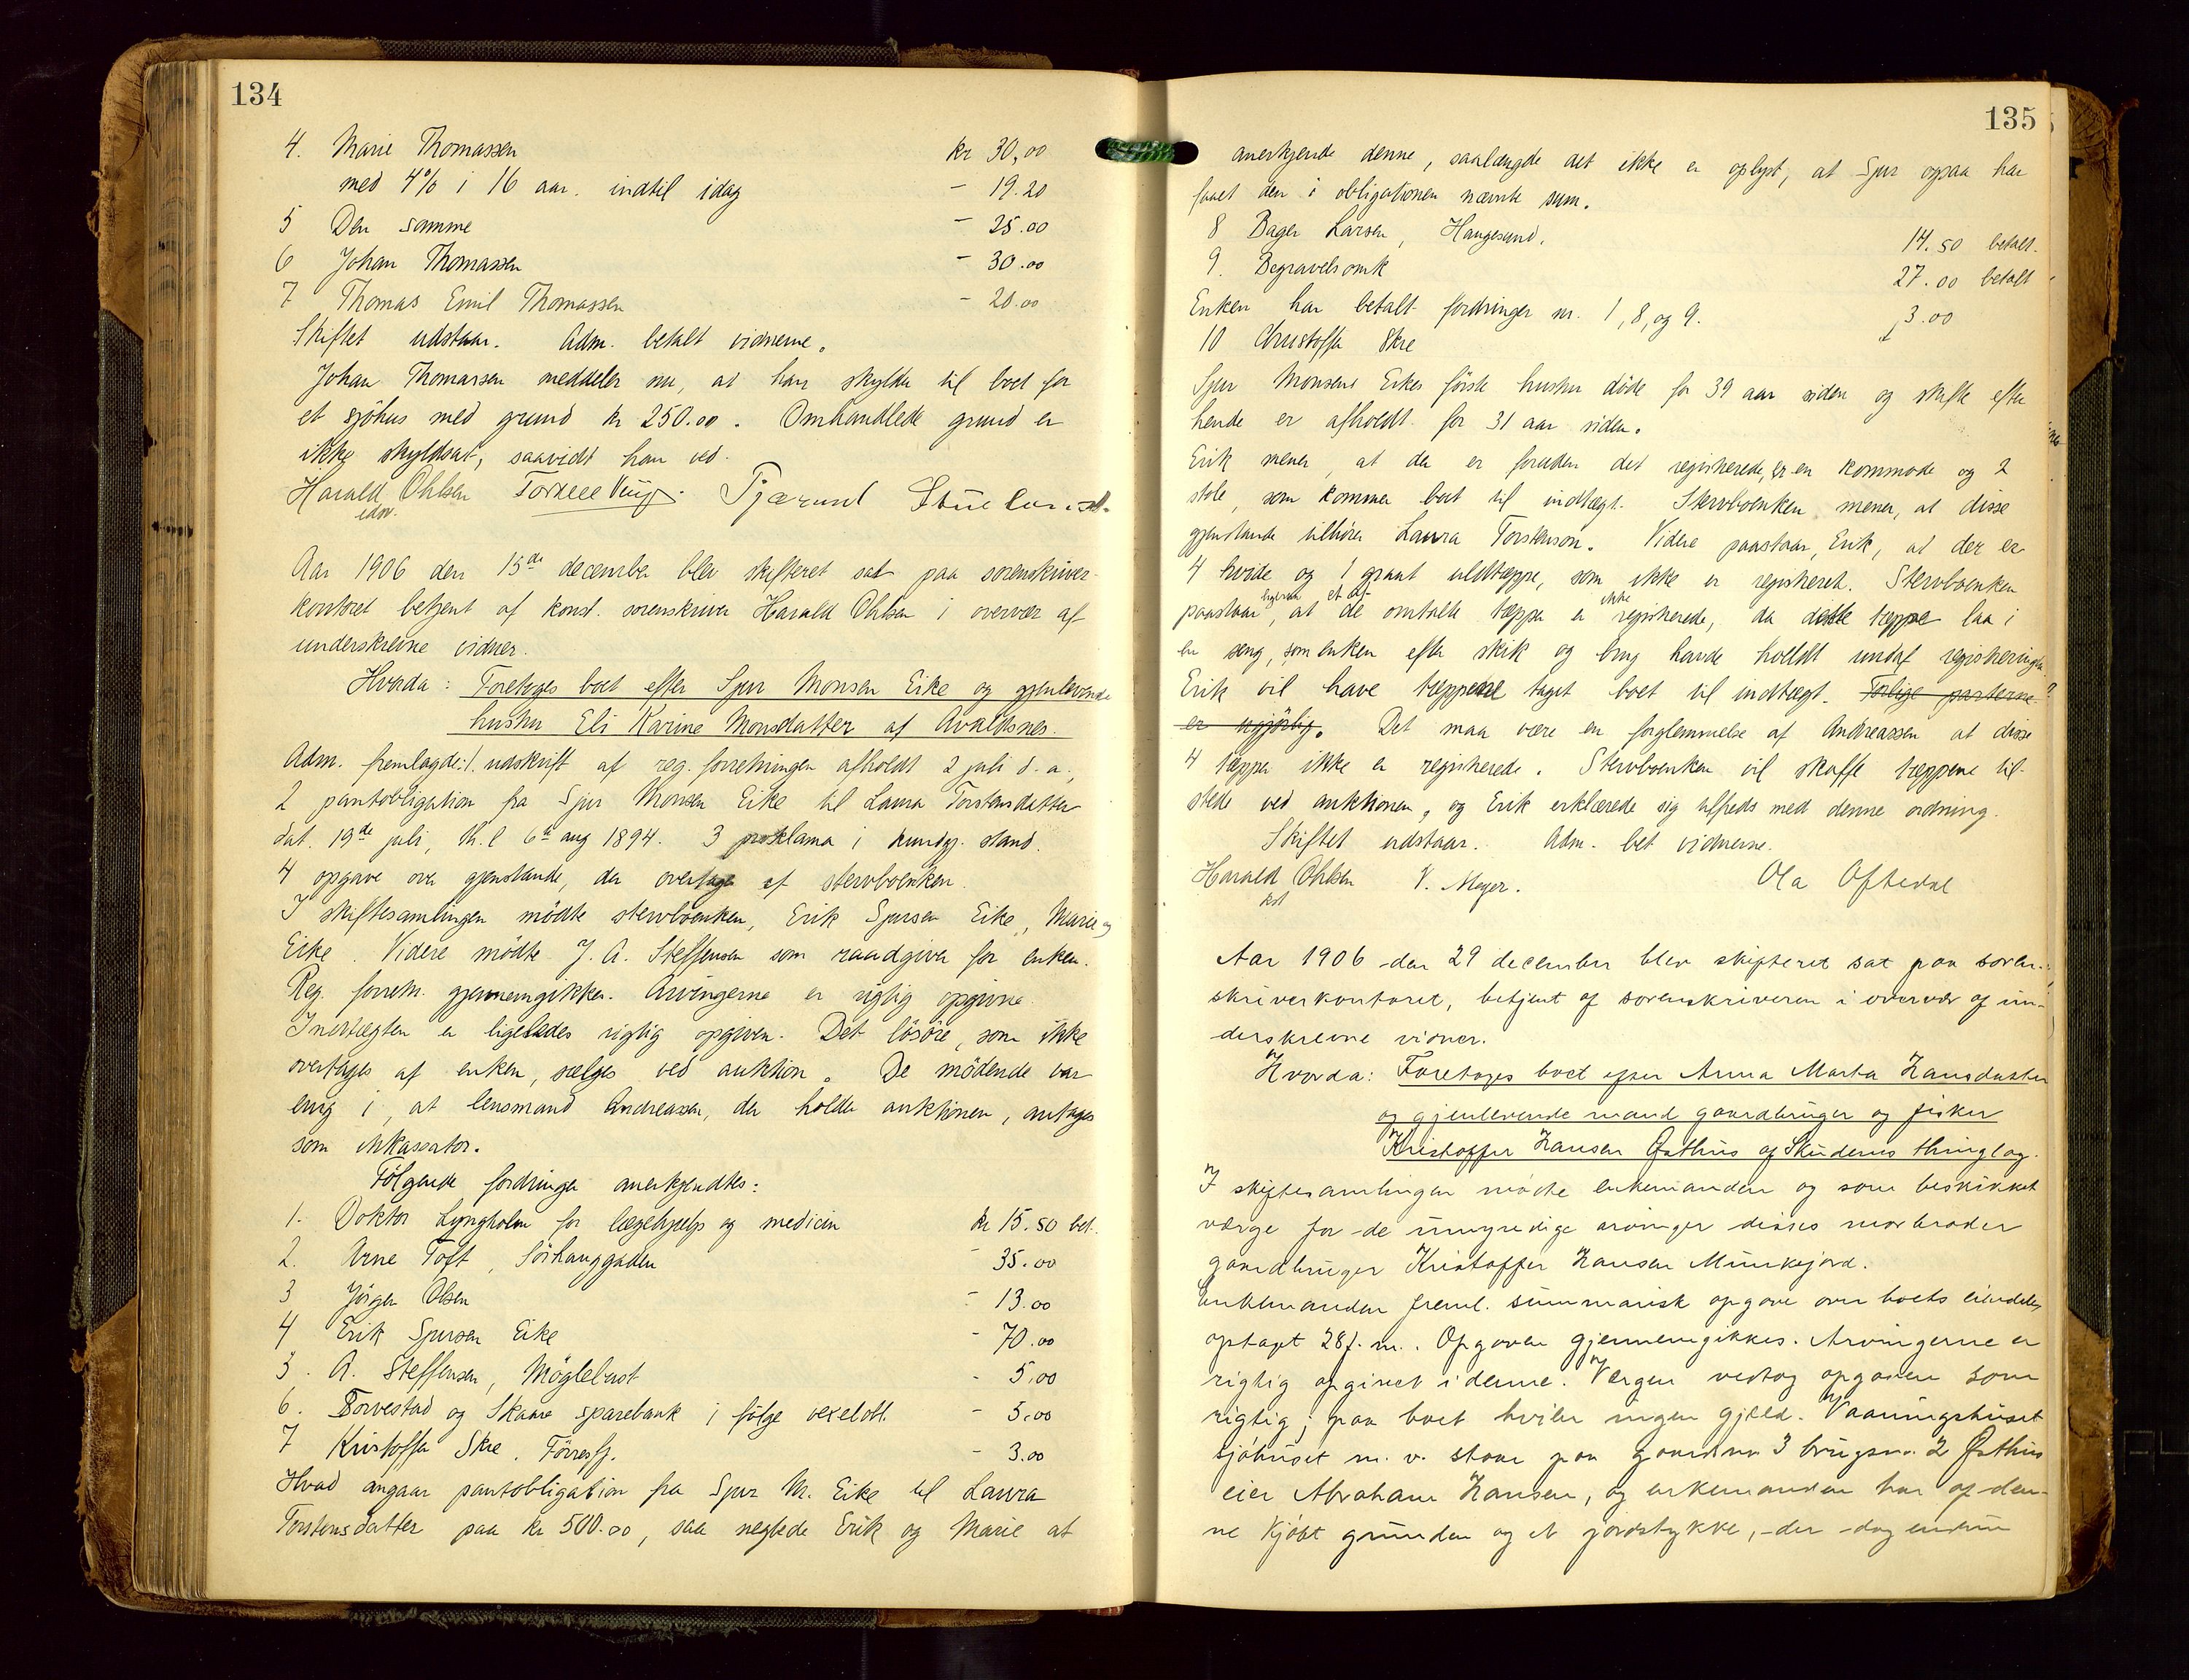 134
4. Marie Thomassen kr 30,00
med 4% i 16 aar. indtil idag - 19.20
5 Den samme - 25.00
6 Johan Thomassen - 30.00
7 Thomas Emil Thomassen - 20.00
Skiftet udstaar. Adm. betalt vidnerne.
Johan Thomassen meddeler nu, at han skylder til boet for
et sjöhus med grund kr 250.00. Omhandlede grund er
ikke skyldsat, saavidt han ved.
Harald Ohlsen
Aar 1906 den 15de december blev skifteret sat paa sorenskriver-
kontoret betjent af konst. sorenskriver Harald Ohlsen i overvær af
underskrevne vidner.
Hvorda: Foretoges boet efter Sjur Monsen Eike og gjenlevende
hustru Eli Karine Monsdatter af Avaldsnes.
Adm. fremlagde: 1. udskrift af reg. forretningen afholdt 2 juli d. a.,
2 pantobligation fra Sjur Monsen Eike til Laura Torstensdatter
dat. 19de juli, th.l 6te aug 1894. 3 proklama i kundgj. stand.
4 opgave over gjenstande, der overtages af stervboenken.
I skiftesamlingen mödte stervboenken, Erik Sjursen Eike, Marie
Eike. Videre mödte J. A. Steffensen som raadgiver for enken.
Reg. forretn. gjennemgikkes. Arvingerne er rigtig opgivne.
Indtægten er ligeledes rigtig opgiven. Det lösöre, som ikke
overtages af enken, sælges ved auktion. De mödende var
enig i, at lensmand Andreassen, der holder auktionen, antages
som inkassator.
Fölgende fordringer anerkjendtes:
1. Doktor Lyngholm for lægehjælp og medicin kr 15.50 bet.
2. Arne Toft, Sörhauggaden - 35.00
3 Jörgen Olsen - 13.00
4 Erik Sjursen Eike - 70.00
5. A. Steffensen, Möglebust - 5.00
6. Torvestad og Skaare sparebank i fölge vexelobl. - 5.00
7 Kristoffer Skre, Förresfj. - 3.00
Hvad angaar pantobligation fra Sjur M. Eike til Laura
Torstensdatter paa kr 500.00, saa negtede Erik og Marie at
135
anerkjende denne, saalængde det ikke er oplyst, at Sjur ogsaa har
faaet den i obligationen nævnte sum.
8 Bager Larsen, Haugesund. 14.50 betalt.
9. Begravelsomk 27.00 betalt
Enken har betalt fordringer nr. 1, 8, og 9.
10 Christoffer Skre 3.00
Sjur Monsens Eikes förste hustru döde for 39 aar siden og skifte efter
hende er afholdt for 31 aar siden.
Erik mener, at der er foruden det registrerede, er en kommode og 2
stole, som kommer boet til indtægt. Stervboenken mener, at disse
gjenstande tilhörer Laura Torstenson. Videre paastaar, Erik, at der er
4 hvide og 1 graat uldtæppe, som ikke er registreret. Stervboenken
paastaar, at et af de omtalte tæpper er ikke registrerede, da dette tæppe laa i
en seng, som enken efter skik og brug havde holdt undaf registreringen.
Erik vil have tæppene taget boet til indtægt. Forlige parterne
er ugjörlig. Det maa være en forglemmelse af Andreassen at disse
4 tæpper ikke er registrerede. Stervboenken vil skaffe tæppene til-
stede ved auktionen, og Erik erklærede sig tilfreds med denne ordning.
Skiftet udstaar. Adm. bet vidnerne.
Harald Ohlsen V. Meyer. Ola Oftedal
kst
Aar 1906 den 29 december blev skifteret sat paa soren-
skriverkontoret, betjent af sorenskriveren i overvær af un-
derskrevne vidner.
Hvorda: Foretoges boet efter Anna Marta Hansdatter
og gjenlevende mand gaardbruger og fisker
Kristoffer Hansen Østhus af Skudenes thinglag.
I skiftesamlingen mödte enkemanden og som beskikket
værge for de umyndige arvinger disses morbroder
gaardbruger Kristoffer Hansen Munkejord.
Enkemanden freml. summarisk opgave over boets eiendele,
optaget 28 f. m.. Opgaven gjennemgikkes. Arvingerne er
rigtig opgivet i denne. Værgen vedtog opgaven som
rigtig; paa boet hviler ingen gjæld. Vaaningshuset
sjöhuset m. v. staar paa gaardsnr 3 brugsnr. 2 Østhus
eier Abraham Hansen, og enkemanden har af den-
ne kjöbt grunden og et jordstykke, der dog endnu